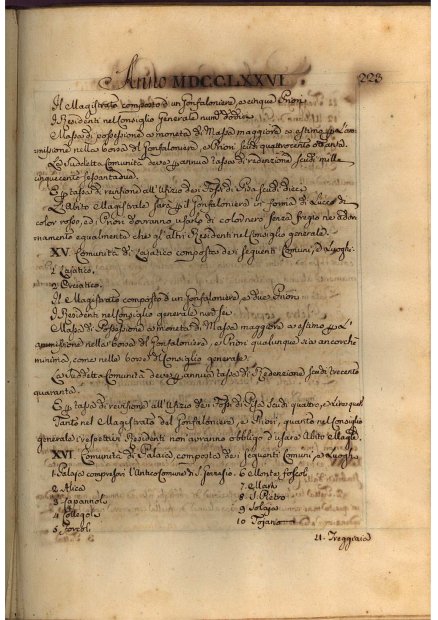 Anno MDCCLXXVI. 223
Il Magistrato composto d'un Gonfaloniere, e cinque Priori
I Residenti nel Consiglio Generale num.º dodici
Massa di possessione o moneta di Massa maggiore o estimo p l'am
missione nella borsa del Gonfaloniere, e Priori scudi quattrocento ottanta.
La suddetta Comunità deve p annua tassa di redenzione scudi mille
cinquecento sessantadue.
E p tassa di revisione all'Ufizio dei Fossi di Pisa scudi dieci
L'Abito Magistrale sarà p il Gonfaloniere in forma di Lucco di
color rosso, ed i Priori dovranno usarlo di color nero senza fregio ne ador
namento egualmente che gl'altri Residenti nel Consiglio generale.
XV. Comunità di Lajatico composta dei seguenti Comuni, e Luoghi.
1. Lajatico.
2. Orciatico.
Il Magistrato composto d'un Gonfaloniere e due Priori
I Residenti nel Consiglio generale num.º sei
Massa di Possessione o moneta di Massa maggiore o estimo p l'
ammissione nella borsa del Gonfaloniere, e Priori qualunque sia ancorche
minima, come nella borsa del Consiglio generale.
La suddetta Comunità deve p annua tassa di Redenzione scudi trecento
quaranta.
E p tassa di revisione all'Ufizio dei Fossi di Pisa scudi quattro, e lire
Tanto nel Magistrato del Gonfaloniere, e Priori, quanto nel Consiglio
generale i respettivi Residenti non avranno obbligo d'usare Abito
XVI. Comunità di Palaja composta dei seguenti Comuni e Luoghi
1 Palaja compresovi l'Antico Comune di S. Gervasio. 6 Montefoscoli
2 Alica 7 Marti
3 Capannoli 8 S. Pietro
4 Collegoli 9 Solaja
5 Forcoli 10 Tojano
11. Treggiaia